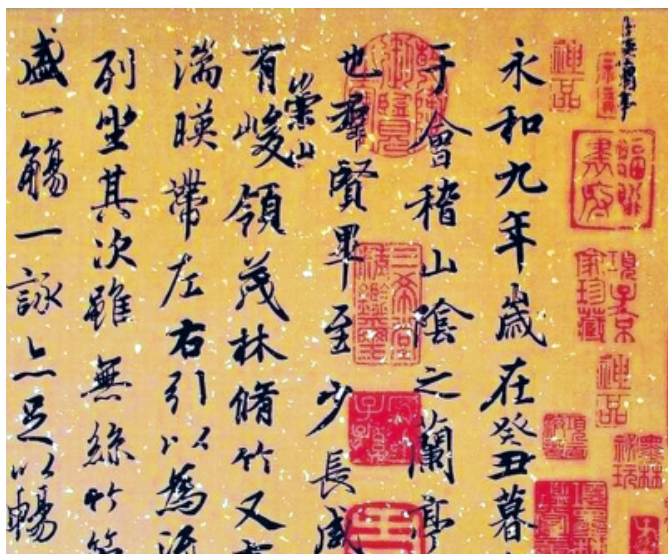 永和九年歲在癸丑暮
于會稽山陰之蘭亭
也羣賢畢至少長咸
有崇山峻領茂林脩竹又有
湍暎帶左右引以為流
列坐其次雖無絲竹管
盛一觴一詠亦足以暢
神品
項子京家珍藏
神品
三希堂精鑑璽